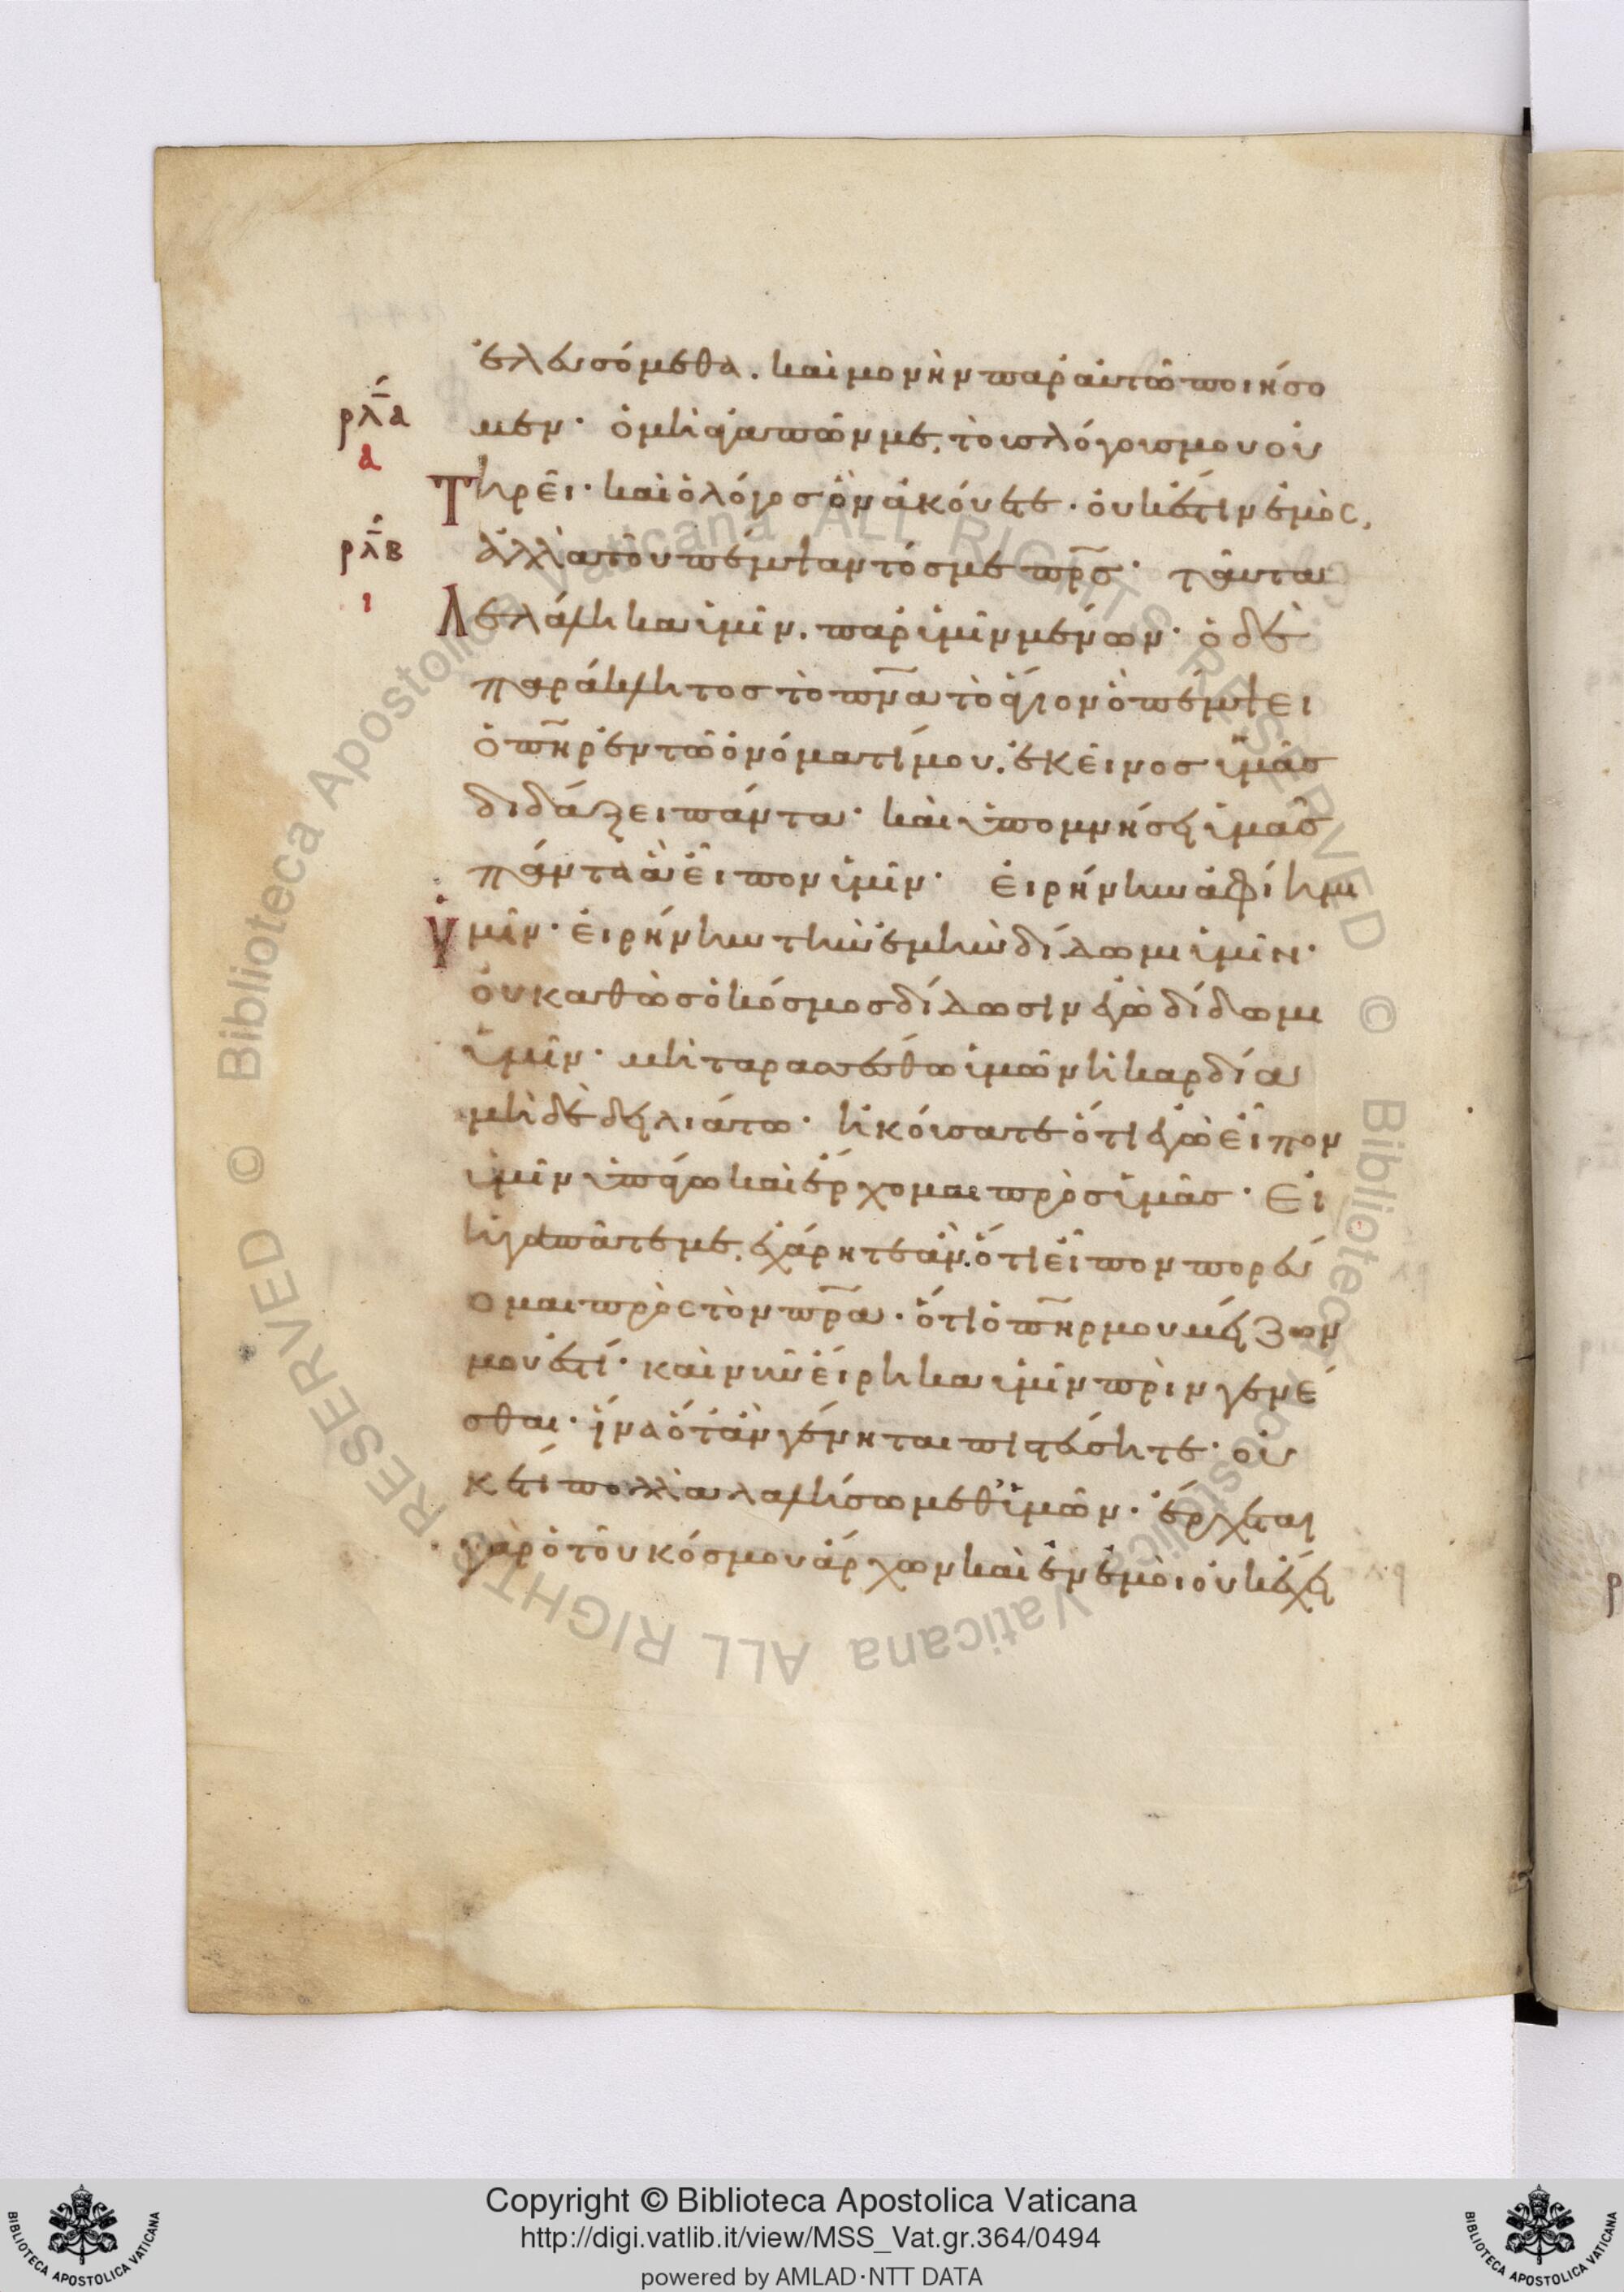 ἐλευσόμεθα. καὶ μονὴν παρ' αὐτῶ ποιήσο
ρλα μεν· ὁ μὴ ἀγαπῶν με, τοὺς λόγους μου οὐ
α
Τηρεῖ· καὶ ὁ λόγος ὃν ἀκούετε· οὐκ ἔστιν ἐμὸς,
ρλβ ἀλλὰ τοῦ πέμψαντός με πρς· ταῦτα
ι
Λελάληκα ὑμῖν. παρ' ὑμῖν μένων· ὁ δὲ
παράκλητος τὸ πνα τὸ ἅγιον ὃ πέμψει
ὁ πηρ ἐν τῶ ὀνόματί μου. ἐκεῖνος ὑμᾶς
διδάξει πάντα· καὶ ὑπομνήσει ὑμᾶς
πάντα ἃ εἶπον ὑμῖν· εἰρήνην ἀφίημι
Ὑμῖν· εἰρήνην τὴν ἐμὴν δίδωμι ὑμῖν·
οὐ καθὼς ὁ κόσμος δίδωσιν ἐγὼ δίδωμι
ὑμῖν· μὴ ταρασσέσθω ὑμῶν ἡ καρδία
μὴ δὲ δειλιάτω· ἠκούσατε ὅτι ἐγὼ εἶπον
ὑμῖν ὑπάγω καὶ ἔρχομαι πρὸς ὑμᾶς· εἰ
ἠγαπᾶτέ με, ἐχάρητε ἄν. ὅτι εἶπον πορεύ
ομαι πρὸς τὸν πρα· ὅτι ὁ πηρ μου μείζων
μού ἐστί· καὶ νῦν εἴρηκα ὑμῖν πρὶν γενέ
σθαι· ἵνα ὅταν γένηται πιστεύσητε· οὐ
κέτι πολλὰ λαλήσω μεθ' ὑμῶν· ἔρχεται
γὰρ ὁ τοῦ κόσμου ἄρχων καὶ ἐν ἐμοὶ οὐκ ἔχει
© Biblioteca Apostolica Vaticana ALL RIGHTS RESERVED © Biblioteca Apostolica Vaticana ALL RIGHTS RESERVED
Copyright © Biblioteca Apostolica Vaticana
http://digi.vatlib.it/view/MSS_Vat.gr.364/0494
powered by AMLAD·NTT DATA
BIBLIOTECA APOSTOLICA VATICANA
BIBLIOTECA APOSTOLICA VATICANA